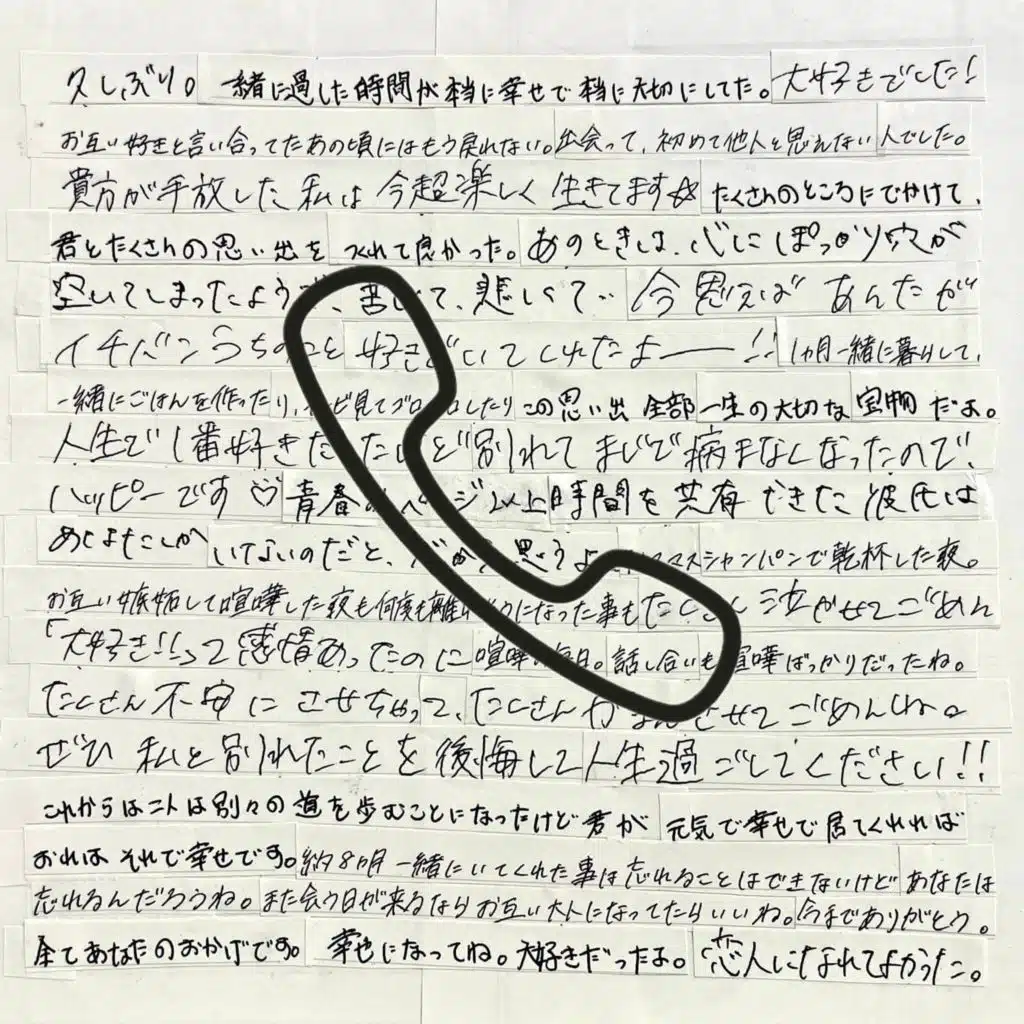 久しぶり。一緒に過した時間が本当に幸せで本当に大切にしてた。大好きでした！
お互い好きと言い合ってたあの頃にはもう戻れない。出会って、初めて他人と思えない人でした。
貴方が手放した私は今超楽しく生きてます☆たくさんのところにでかけて、
君とたくさんの思い出をつくれて良かった。あのときは、心にぽっかり穴が
空いてしまったよう、苦しくて、悲しくて‥今思えばあんたが
イチバンうちのこと好きでいてくれたよー!!1ヵ月一緒に暮らして、
一緒にごはんを作ったり、見てゴロゴロしたりこの思い出全部一生の大切な宝物だよ。
人生で1番好きだったけど別れてまじで病まなくなったので、
ハッピーです♡青春のページ以上時間を共有できた彼氏は
あしたしか いてないのだと、思うよ マスシャンパンで乾杯した夜。
お互い嫉妬して喧嘩した夜も何度も離ればなれになった事もたくさん泣かせてごめん
「大好き!!って感情あったのに喧嘩の毎日。話し合いも喧嘩ばっかりだったね。
たくさん不安にさせちゃって、たくさんがまんさせてごめんね。
ぜひ私と別れたことを後悔して人生過ごしてください!!
これからは二人は別々の道を歩むことになったけど君が元気で幸せで居てくれれば
おれはそれで幸せです。約8ヵ月一緒にいてくれた事は忘れることはできないけどあなたは
忘れるんだろうね。また会う日が来るならお互い大人になってたらいいね。今までありがとう。
全てあなたのおかげです。幸せになってね。大好きだったよ。恋人になれてよかった。